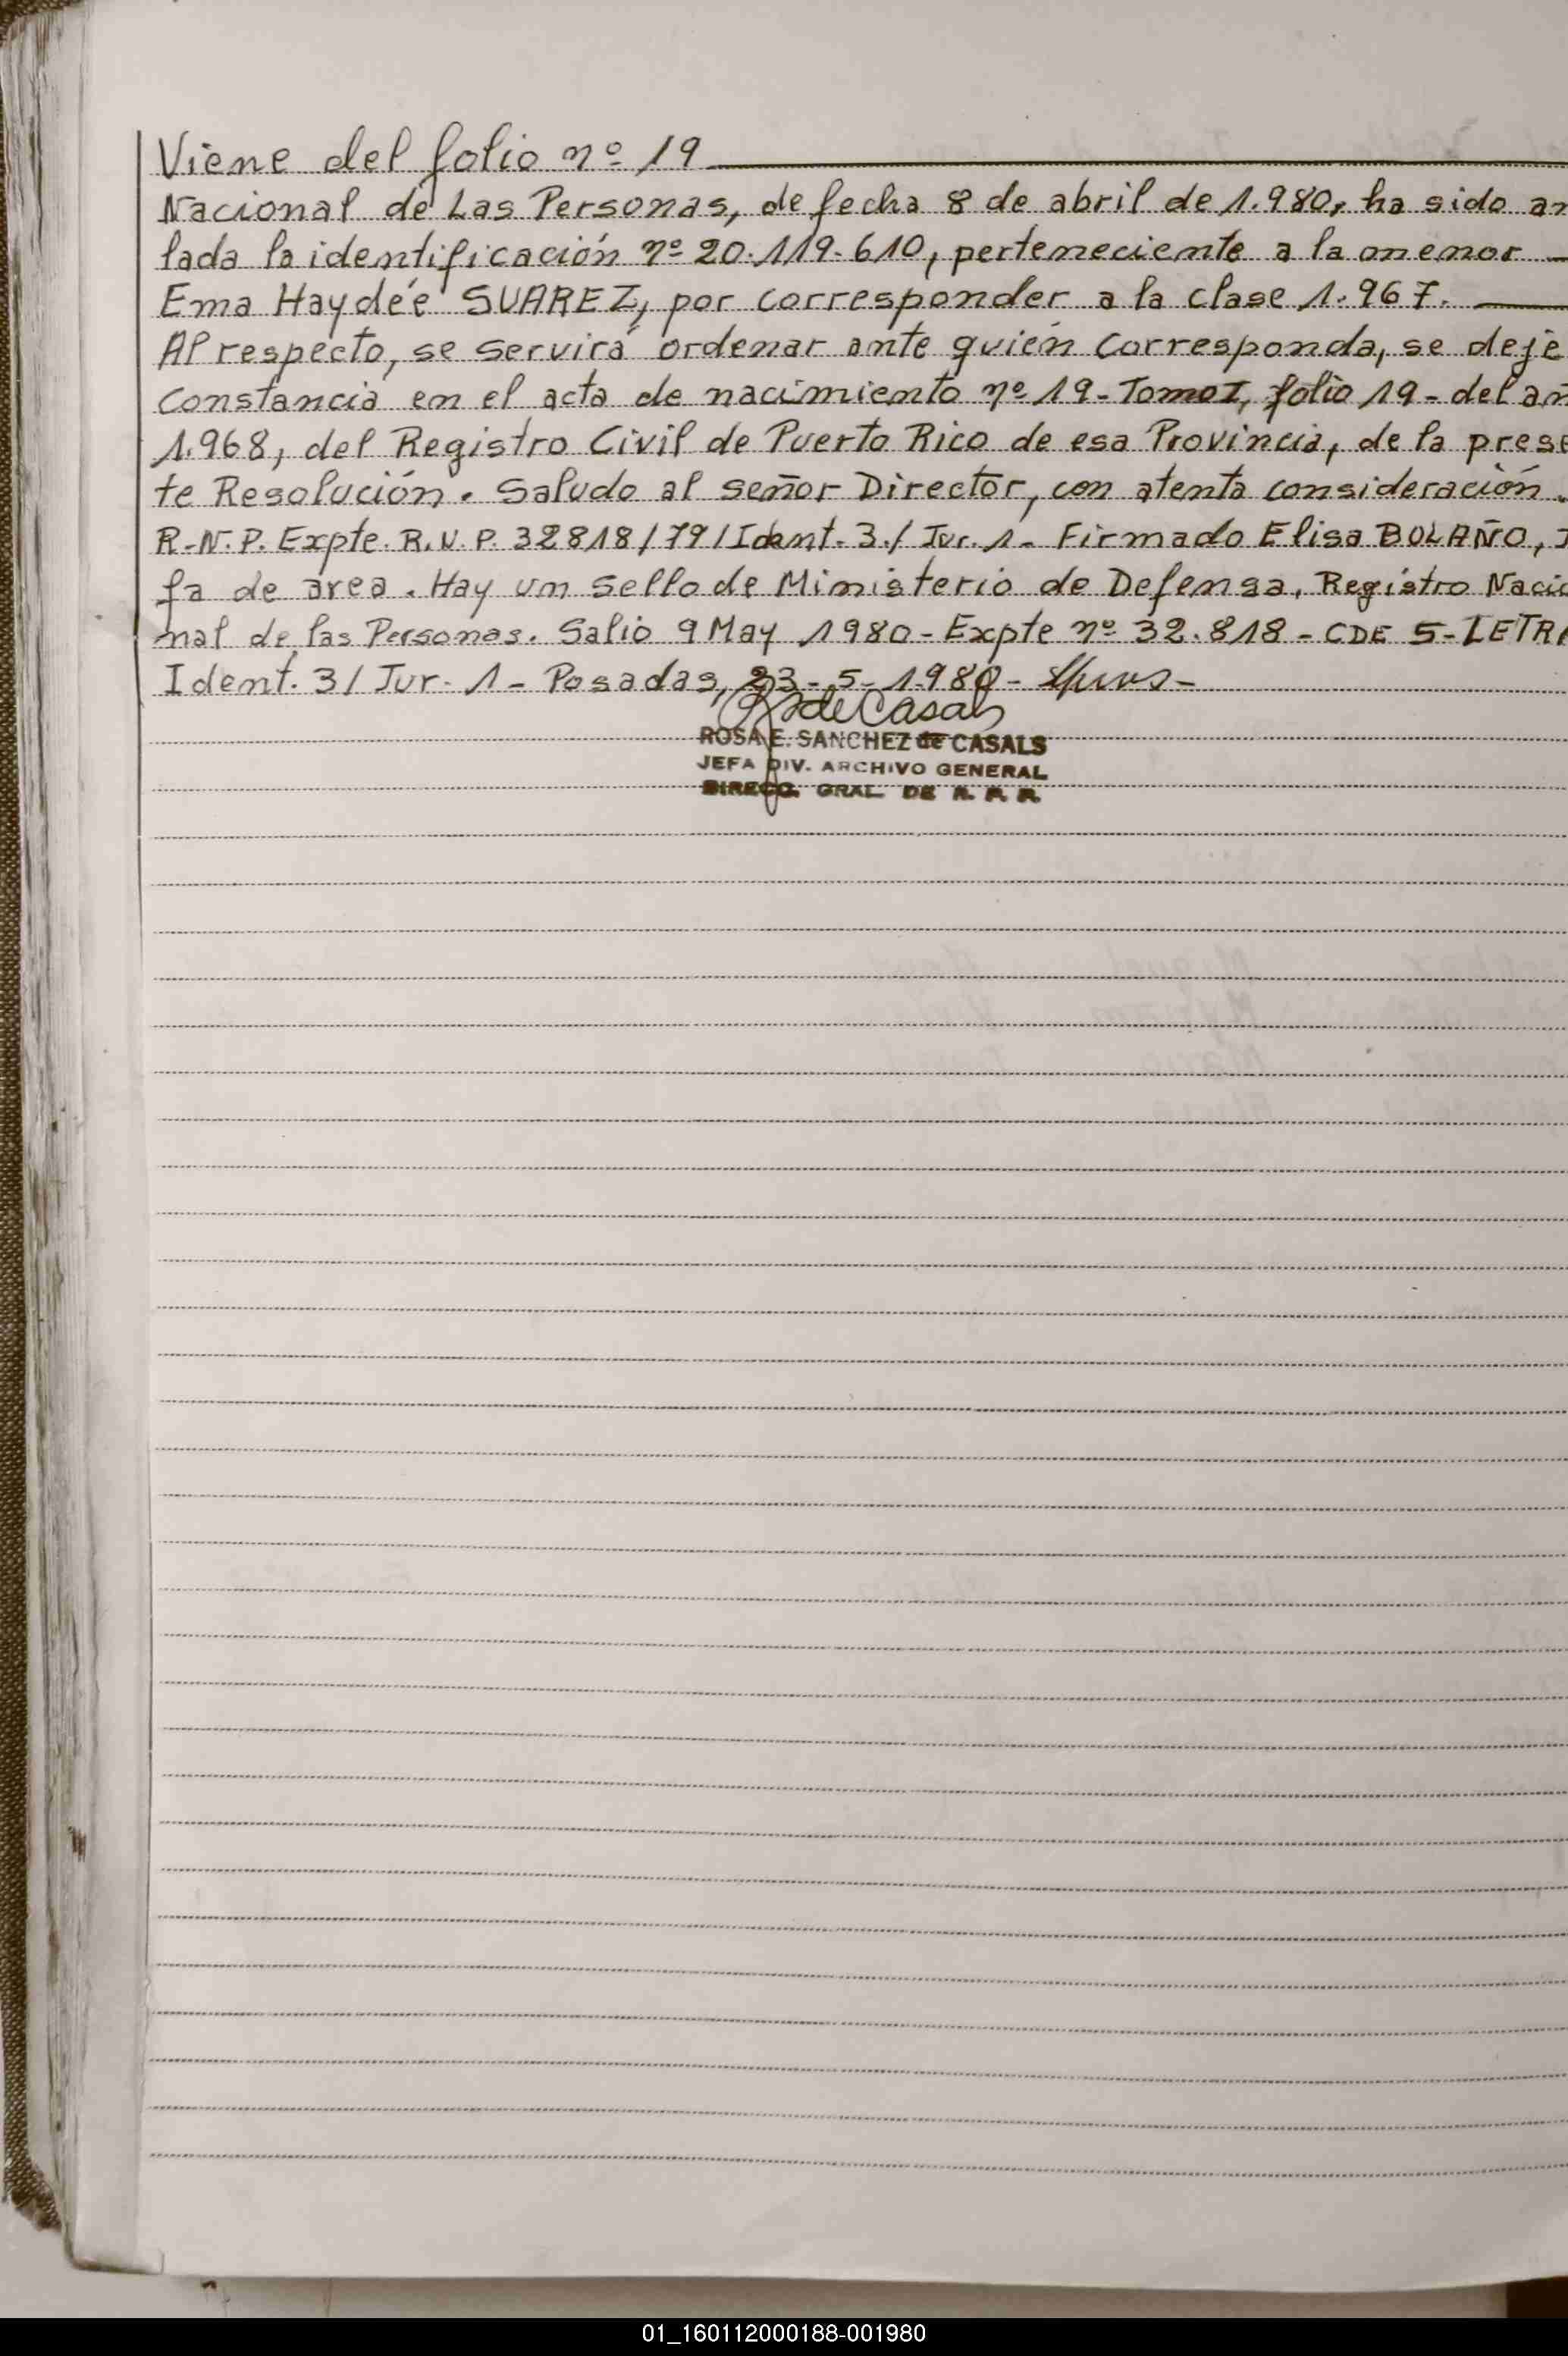 Viene del folio nº 19
Nacional de Las Personas, de fecha 8 de abril de 1.980, ha sido an
lada la identificación nº 20.119.610, perteneciente a la menor —
Ema Haydée SUAREZ, por corresponder a la clase 1.967. —
Al respecto, se servirá ordenar ante quién corresponda, se deje
constancia en el acta de nacimiento nº 19 - Tomo I, folio 19 - del añ
1.968, del Registro Civil de Puerto Rico de esa Provincia, de la prese
te Resolución. Saludo al señor Director, con atenta consideración.
R.N.P. Expte. R.N.P. 32818/79/Ident. 3./Jur. 1 - Firmado Elisa BOLAÑO, J
fa de area. Hay un sello de Ministerio de Defensa, Registro Nacio
nal de las Personas. Salio 9 May 1980 - Expte nº 32.818 - CDE 5 - LETRA
Ident. 3/Jur. 1 - Posadas, 23 - 5 - 1.980 -
de Casals
ROSA E. SANCHEZ de CASALS
JEFA DIV. ARCHIVO GENERAL
DIRECC. GRAL. DE R. P. P.
01_160112000188-001980